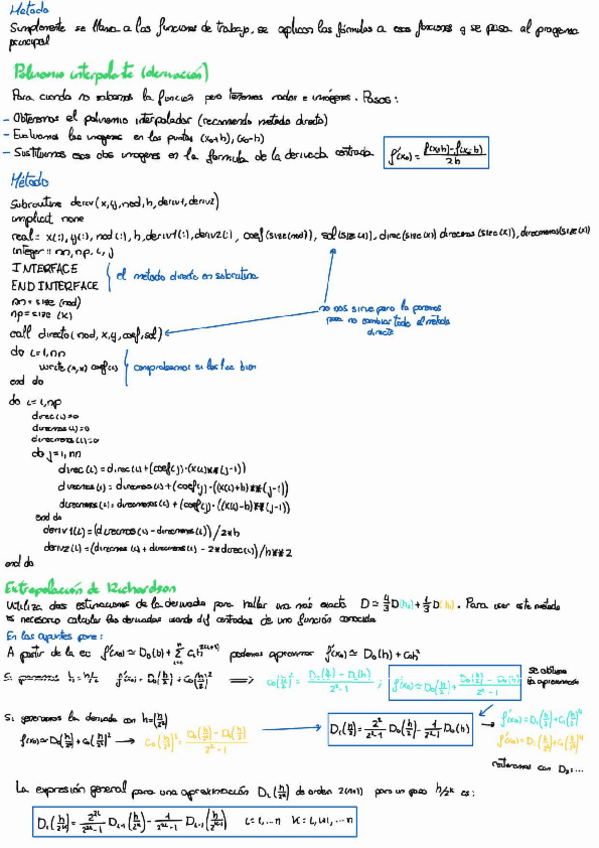 Método
Simplemente se llama a las funciones de trabajo, se aplican las fórmulas a esas funciones y se pasa al programa
principal
Polinomio interpolante (derivación)
Para cuando no sabemos la función pero tenemos nodos e imágenes. Pasos:
- Obtenemos el polinomio interpolador (recomiendo método directo)
- Evaluamos las imágenes en los puntos (x₀+h), (x₀-h)
- Sustituimos esas dos imágenes en la fórmula de la derivada centrada f'(x₀) = (f(x₀+h) - f(x₀-h))/2h
Método
Subroutine deriv (x,y,nod,h,deriv1,deriv2)
implicit none
real :: x(:), y(:), nod(:), h, deriv1(:), deriv2(:), coef(size(nod)), sol(size(x)), direc(size(x)) direcmas(size(x)), direcmenos(size(x))
integer :: nn, np, i, j
INTERFACE
END INTERFACE
el método directo en subrutina
nn = size (nod)
np = size (x)
call directo (nod, x, y, coef, sol)
no nos sirve pero la ponemos
para no cambiar todo el método
directo
do i=1,nn
write (*,*) coef(i)
end do
comprobamos si los lee bien
do i=1,np
direc(i)=0
direcmas(i)=0
direcmenos(i)=0
do j=1,nn
direc(i)=direc(i)+(coef(j)·(x(i)**(j-1))
direcmas(i)=direcmas(i)+(coef(j)·((x(i)+h)**(j-1))
direcmenos(i)=direcmenos(i)+(coef(j)·((x(i)-h)**(j-1))
end do
deriv1(i)=(direcmas(i)-direcmenos(i))/2*h
deriv2(i)=(direcmas(i)+direcmenos(i)-2*direc(i))/h**2
end do
Extrapolación de Richardson
Utiliza dos estimaciones de la derivada para hallar una más exacta D ≃ 4/3 D(h₂) + 1/3 D(h₁). Para usar este método
es necesario calcular las derivadas usando dif centradas de una función conocida
En los apuntes pone:
A partir de la ec
podemos aproximar f'(x₀) ≃ D₀(h) + C₀h²
Si generamos h=h/2 f'(x₀) ≃ D₀(h/2) + C₀(h/2)²
se obtiene
la aproximación
Si generamos la derivada con h=(h/2²)
D₁(h/2) = 2²/(2²-1) D₀(h/2) - 1/(2²-1) D₀(h)
La expresión general para una aproximación Dᵢ(h/2ᵏ) de orden 2(i+1) para un paso h/2ᵏ es:
Dᵢ(h/2ᵏ) = 2²ⁱ/(2²ⁱ-1) Dᵢ₋₁(h/2ᵏ) - 1/(2²ⁱ-1) Dᵢ₋₁(h/2ᵏ⁻¹) i=1,...n k=i, i+1,...n